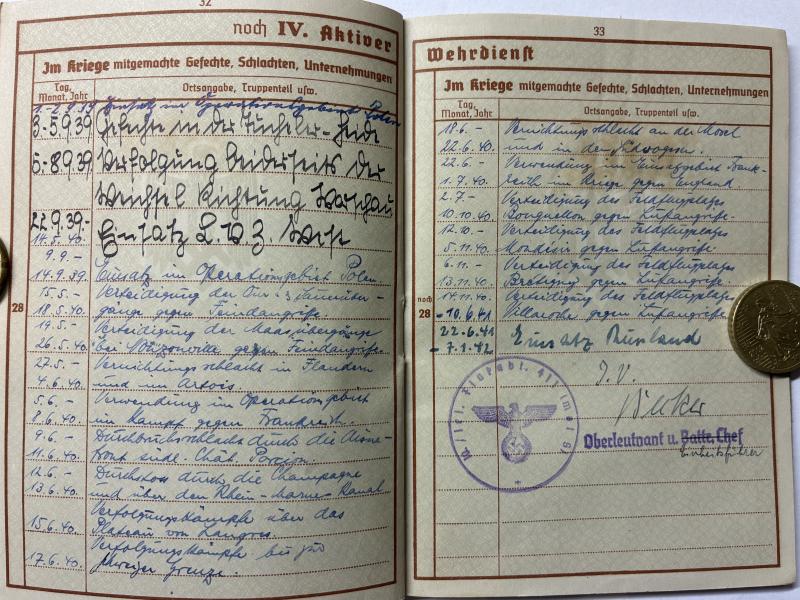 32
noch IV. Aktiver
Im Kriege mitgemachte Gefechte, Schlachten, Unternehmungen
Tag, Monat, Jahr
Ortsangabe, Truppenteil usw.
1.-2.9.39 Einsatz im Operationsgebiet Polen
3.-5.9.39 Gefechte in der Tucheler-Heide
5.-8.9.39 Verfolgung beiderseits der
Weichsel Richtung Warschau
22.9.39.-
14.5.40. Einsatz L.V.Z. West
9.9.-
14.9.39. Einsatz im Operationsgebiet Polen
15.5.- Verteidigung der
18.5.40. gegen Feindangriffe
19.5.- Verteidigung der Maasübergänge
26.5.40. bei gegen Feindangriffe
27.5.- Vernichtungsschlacht in Flandern
4.6.40. und im Artois
5.6.- Verwendung im Operationsgebiet
8.6.40. im Kampf gegen Frankreich.
9.6.- Durchbruchsschlacht durch die Aisne-
11.6.40. front südl. Chât. Porcien
12.6.- Durchstoss durch die Champagne
13.6.40. und über den Rhein-Marne-Kanal
Verfolgungskämpfe über das
15.6.40. Plateau von Langres
Verfolgungskämpfe bis zur
17.6.40. Schweizer Grenze.
28
33
Wehrdienst
Im Kriege mitgemachte Gefechte, Schlachten, Unternehmungen
Tag, Monat, Jahr
Ortsangabe, Truppenteil usw.
18.6.- Vernichtungsschlacht an der Mosel
22.6.40. und in den Südvogesen.
22.6.- Verwendung im Einsatzgebiet Frank-
1.7.40. reich im Kriege gegen England
2.7.- Verteidigung des Feldflugplatzes
10.10.40. gegen Luftangriffe
12.10.- Verteidigung des Feldflugplatzes
5.11.40. Mondésir gegen Luftangriffe
6.11.- Verteidigung des Feldflugplatzes
13.11.40. Brétigny gegen Luftangriffe
14.11.40. Verteidigung des Feldflugplatzes
-10.6.41 Villaroche gegen Luftangriffe
22.6.41
-7.1.42. Einsatz Rußland
noch
28
J.V.
Oberleutnant u. Battr. Chef
Einheitsführer